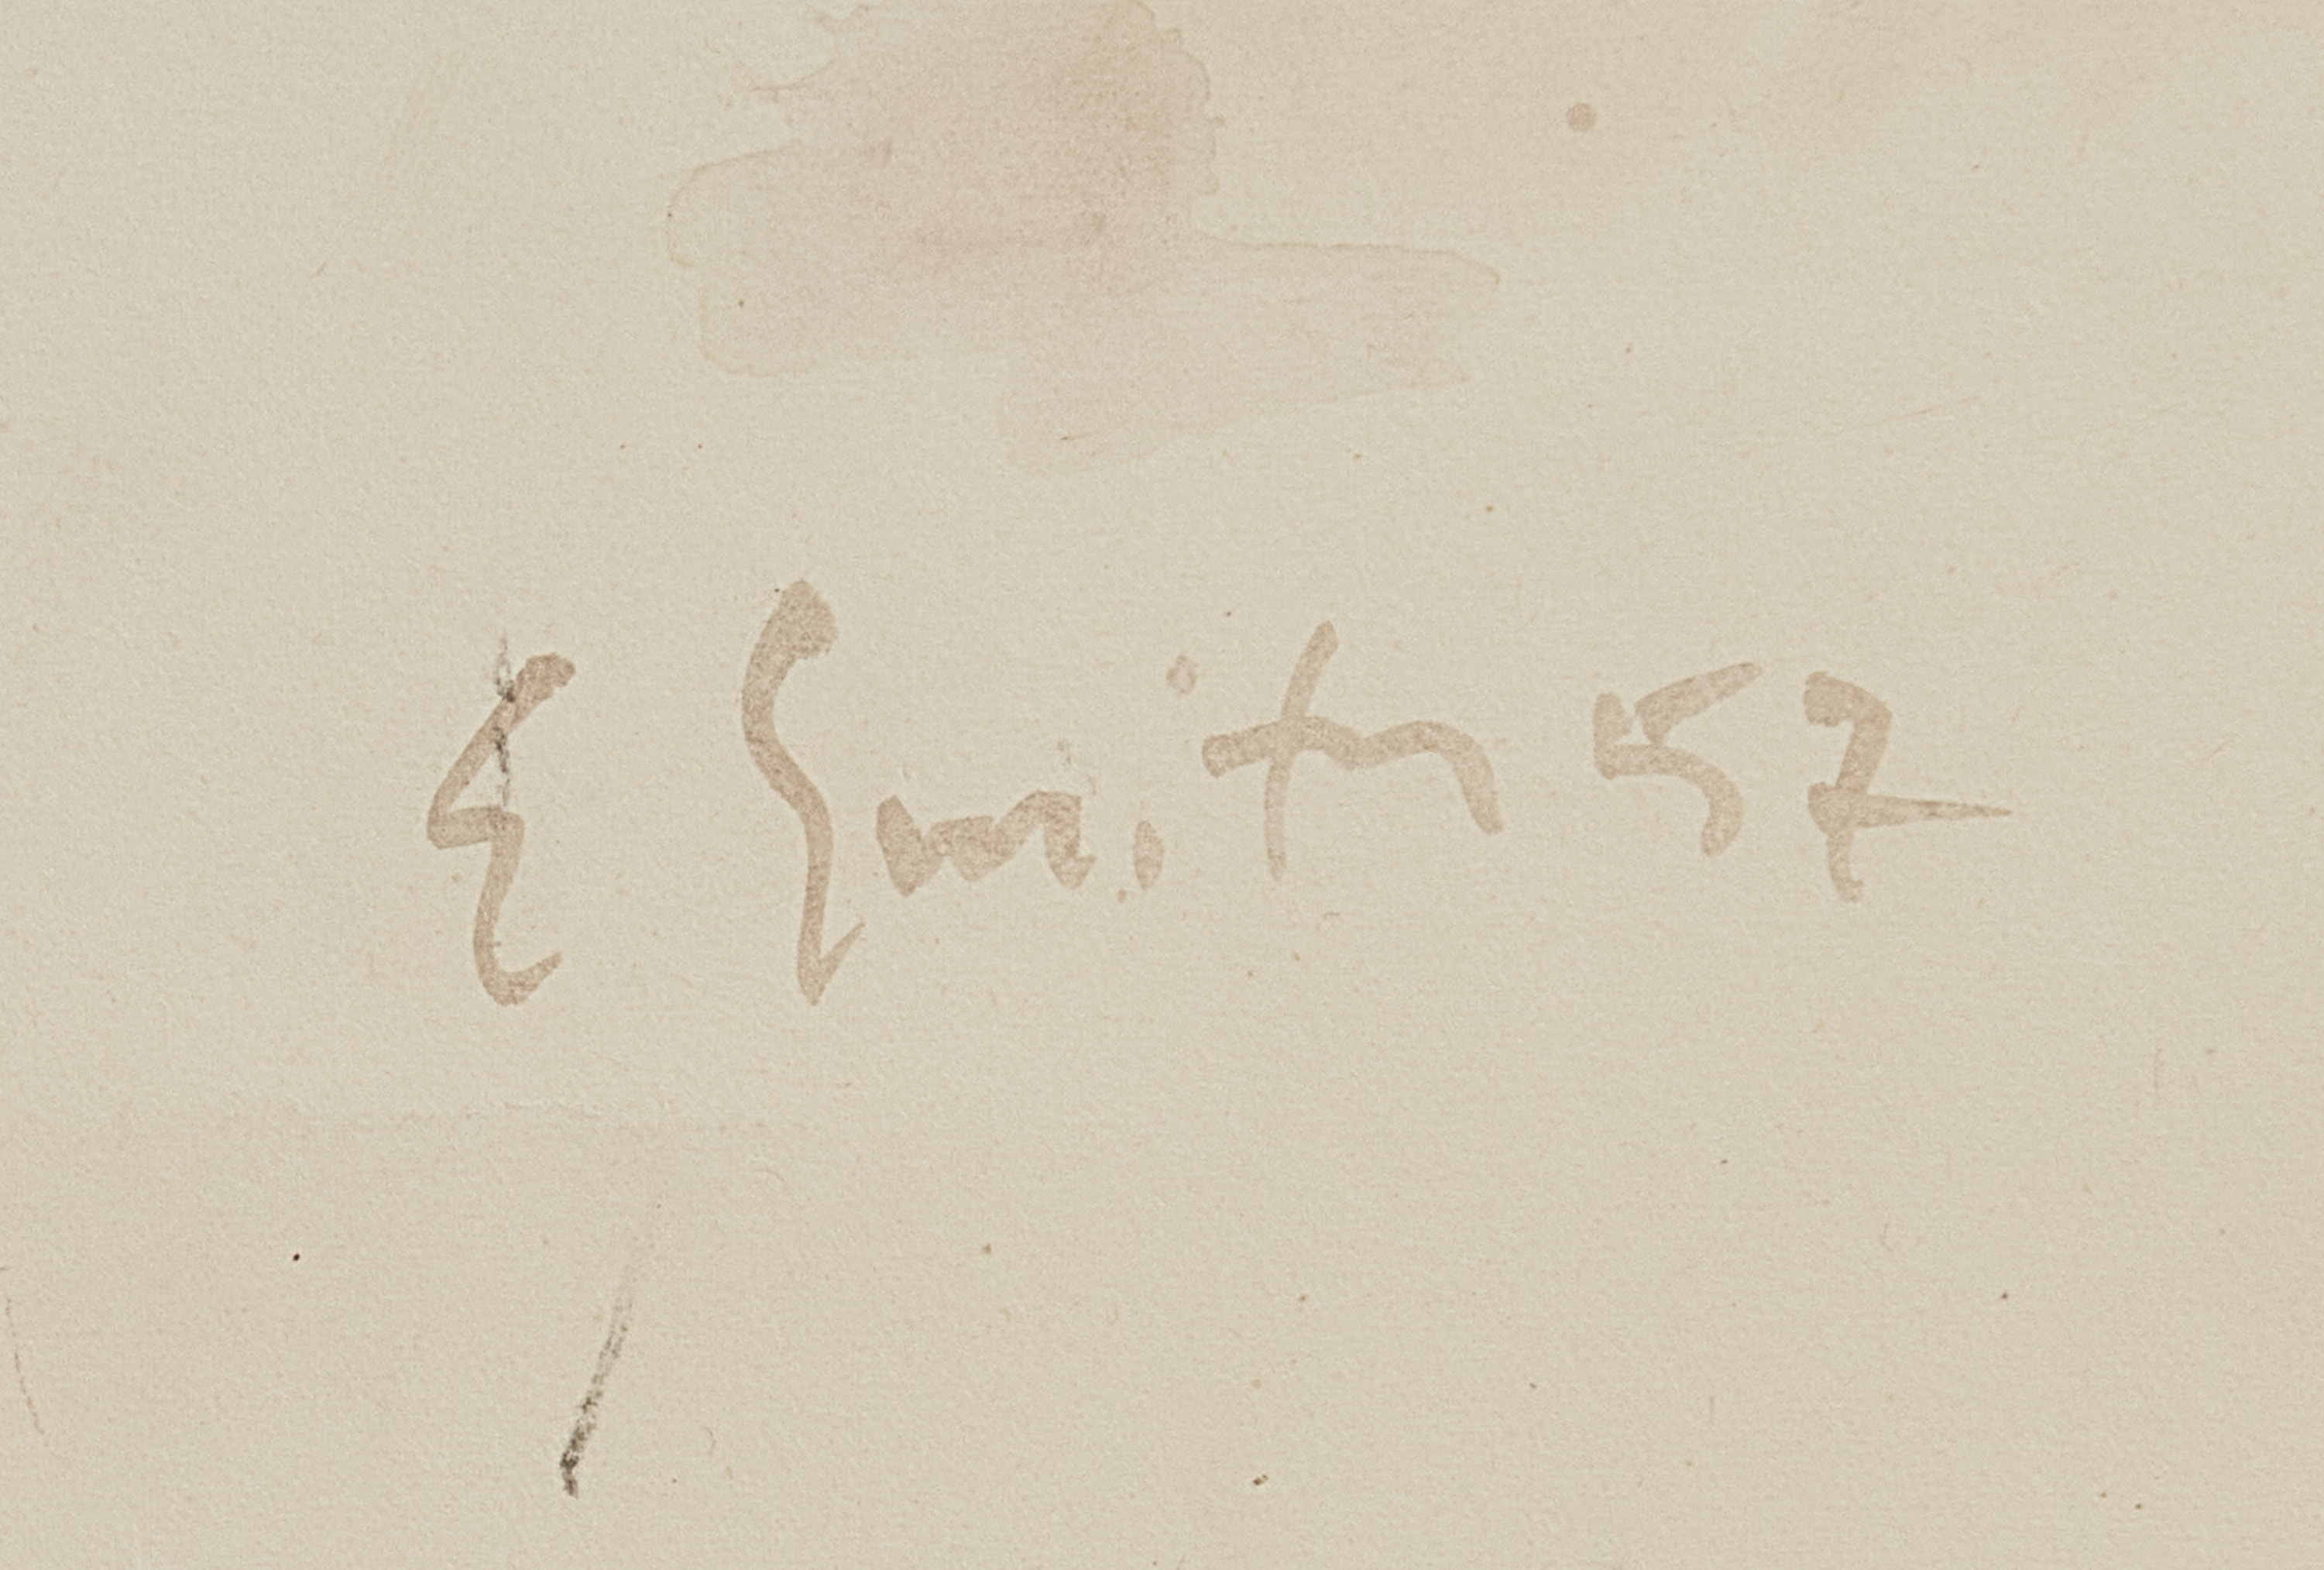 E Smith 57